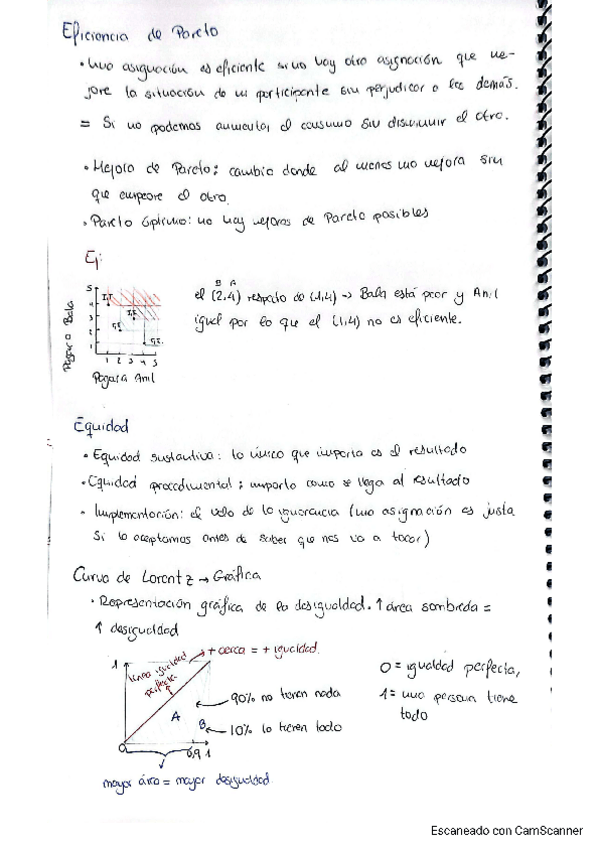 Eficiencia de Pareto
• Una asignación es eficiente si no hay otra asignación que me-
jore la situación de un participante sin perjudicar a los demás.
= Si no podemos aumentar el consumo sin disminuir el otro.
• Mejora de Pareto: cambio donde al menos uno mejora sin
que empeore el otro.
• Pareto óptimo: no hay mejoras de Pareto posibles
Ej:
B A
el (2,4) respecto de (1,4) → Bala está peor y Anil
igual por lo que el (1,4) no es eficiente.
5
4
3
2
1
I,T
T,T
1 2 3 4 5
Pagar a Bala
Pagar a Anil
Equidad
• Equidad sustantiva: lo único que importa es el resultado
• Equidad procedimental: importa como se llega al resultado
• Implementación: el velo de la ignorancia (una asignación es justa
si la aceptamos antes de saber que nos va a tocar)
Curva de Lorentz → Gráfica
• Representación gráfica de la desigualdad. ↑ área sombreda =
↑ desigualdad
+ cerca = + igualdad.
línea igualdad
perfecta
1
A
B
90% no tienen nada
10% lo tienen todo
0
0,9 1
mayor área = mayor desigualdad
0 = igualdad perfecta,
1 = una persona tiene
todo
Escaneado con CamScanner